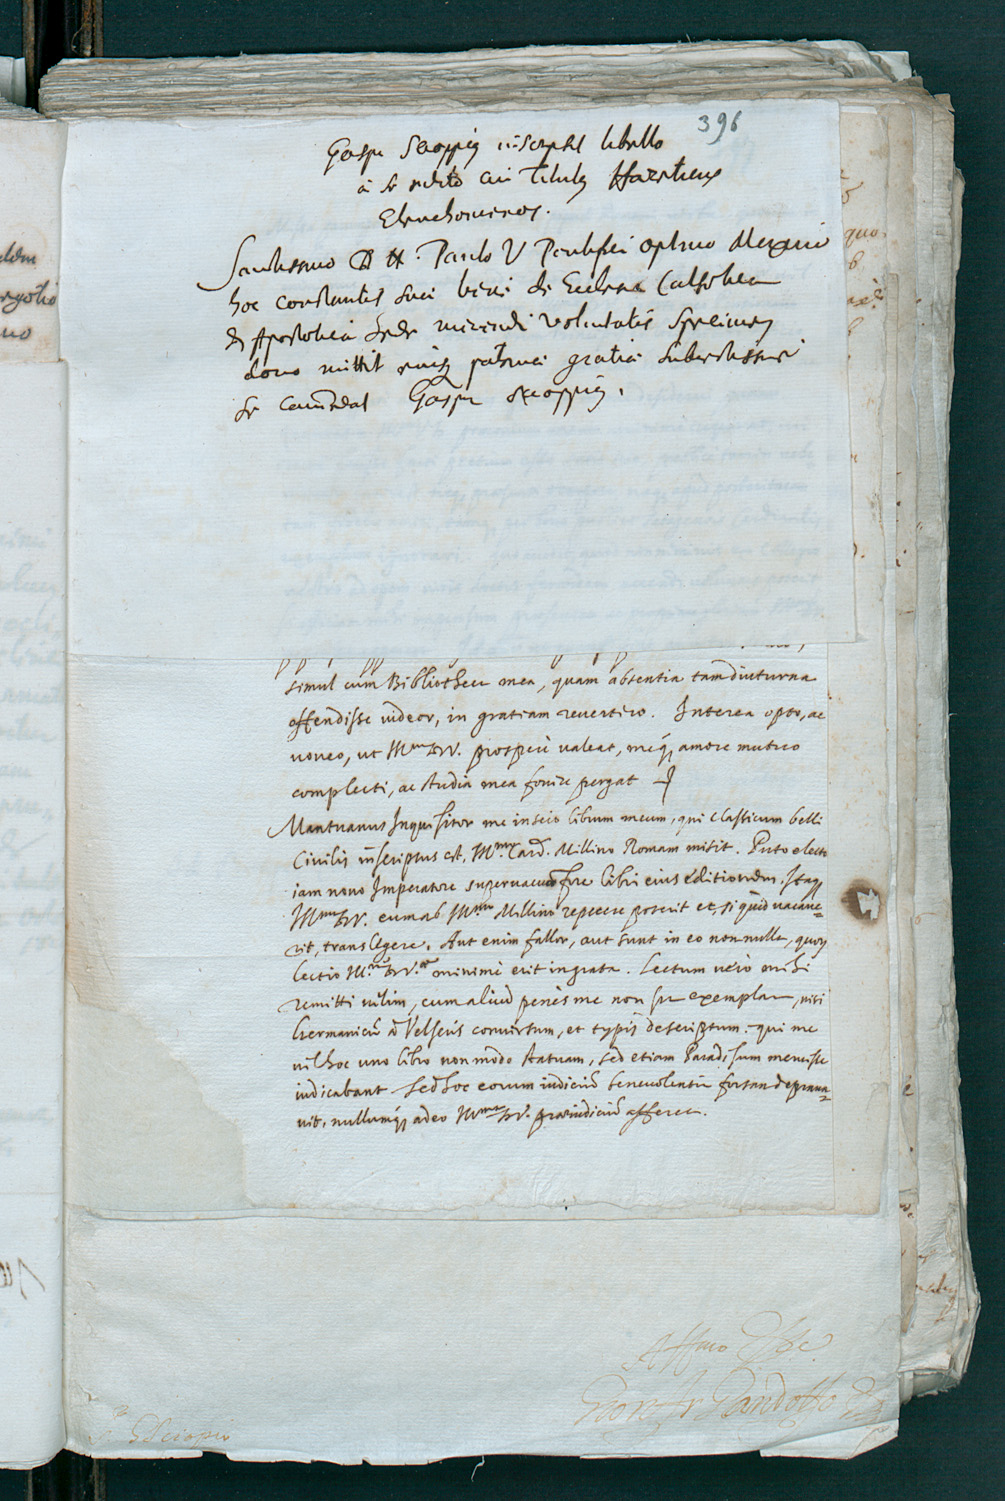 396
Gaspar Scioppius inscripsit libello
à se edito cui titulus Haereticus
Elenchomenos.
Sanctissimo D. N. Paulo V Pontifici Optimo Maximo
hoc constantis suci bene de Ecclesia Catholica
& Apostolica Sede merendi voluntatis specimen
dono mittit eiusq patrinae gratiae submississime
se commendat Gaspar Scioppius.
simul cum Bibliotheca mea, quam absentia tam diuturna
offendisse videor, in gratiam revertero. Interea opto, ac
voveo, ut Illma DV. prosperè valeat, meq; amore mutuo
complecti, ac studia mea fovere pergat
Mantuanus Inquisitor me inscio librum meum, qui Classicum belli
Civilis inscriptus est, Illmo Card. Millino Romam misit. Puto electo
iam novo Imperatore supervacuam fore libri eius editionem. Itaq
Illma DV. eum ab Illmo Millino repetere poterit et, si quid vacave-
rit, translegere. Aut enim fallor, aut sunt in eo nonnulla, quoru
lectio Illmae DV.ae minimè erit ingrata. Lectum verò mihi
remitti velim, cum aliud penès me non sit exemplar, nisi
Germanicu à Velseris conversum, et typis descriptum. qui me
vel hoc uno libro non modo statuam, sed etiam Paradisum meruisse
iudicabant. Sed hoc eorum iudiciu benevolentia forsan deprava-
vit, nullumq; adeo Illmae DV. praeiudiciu afferet.
Affmo
Pandolfo
Scioppio
ldem
rgotio